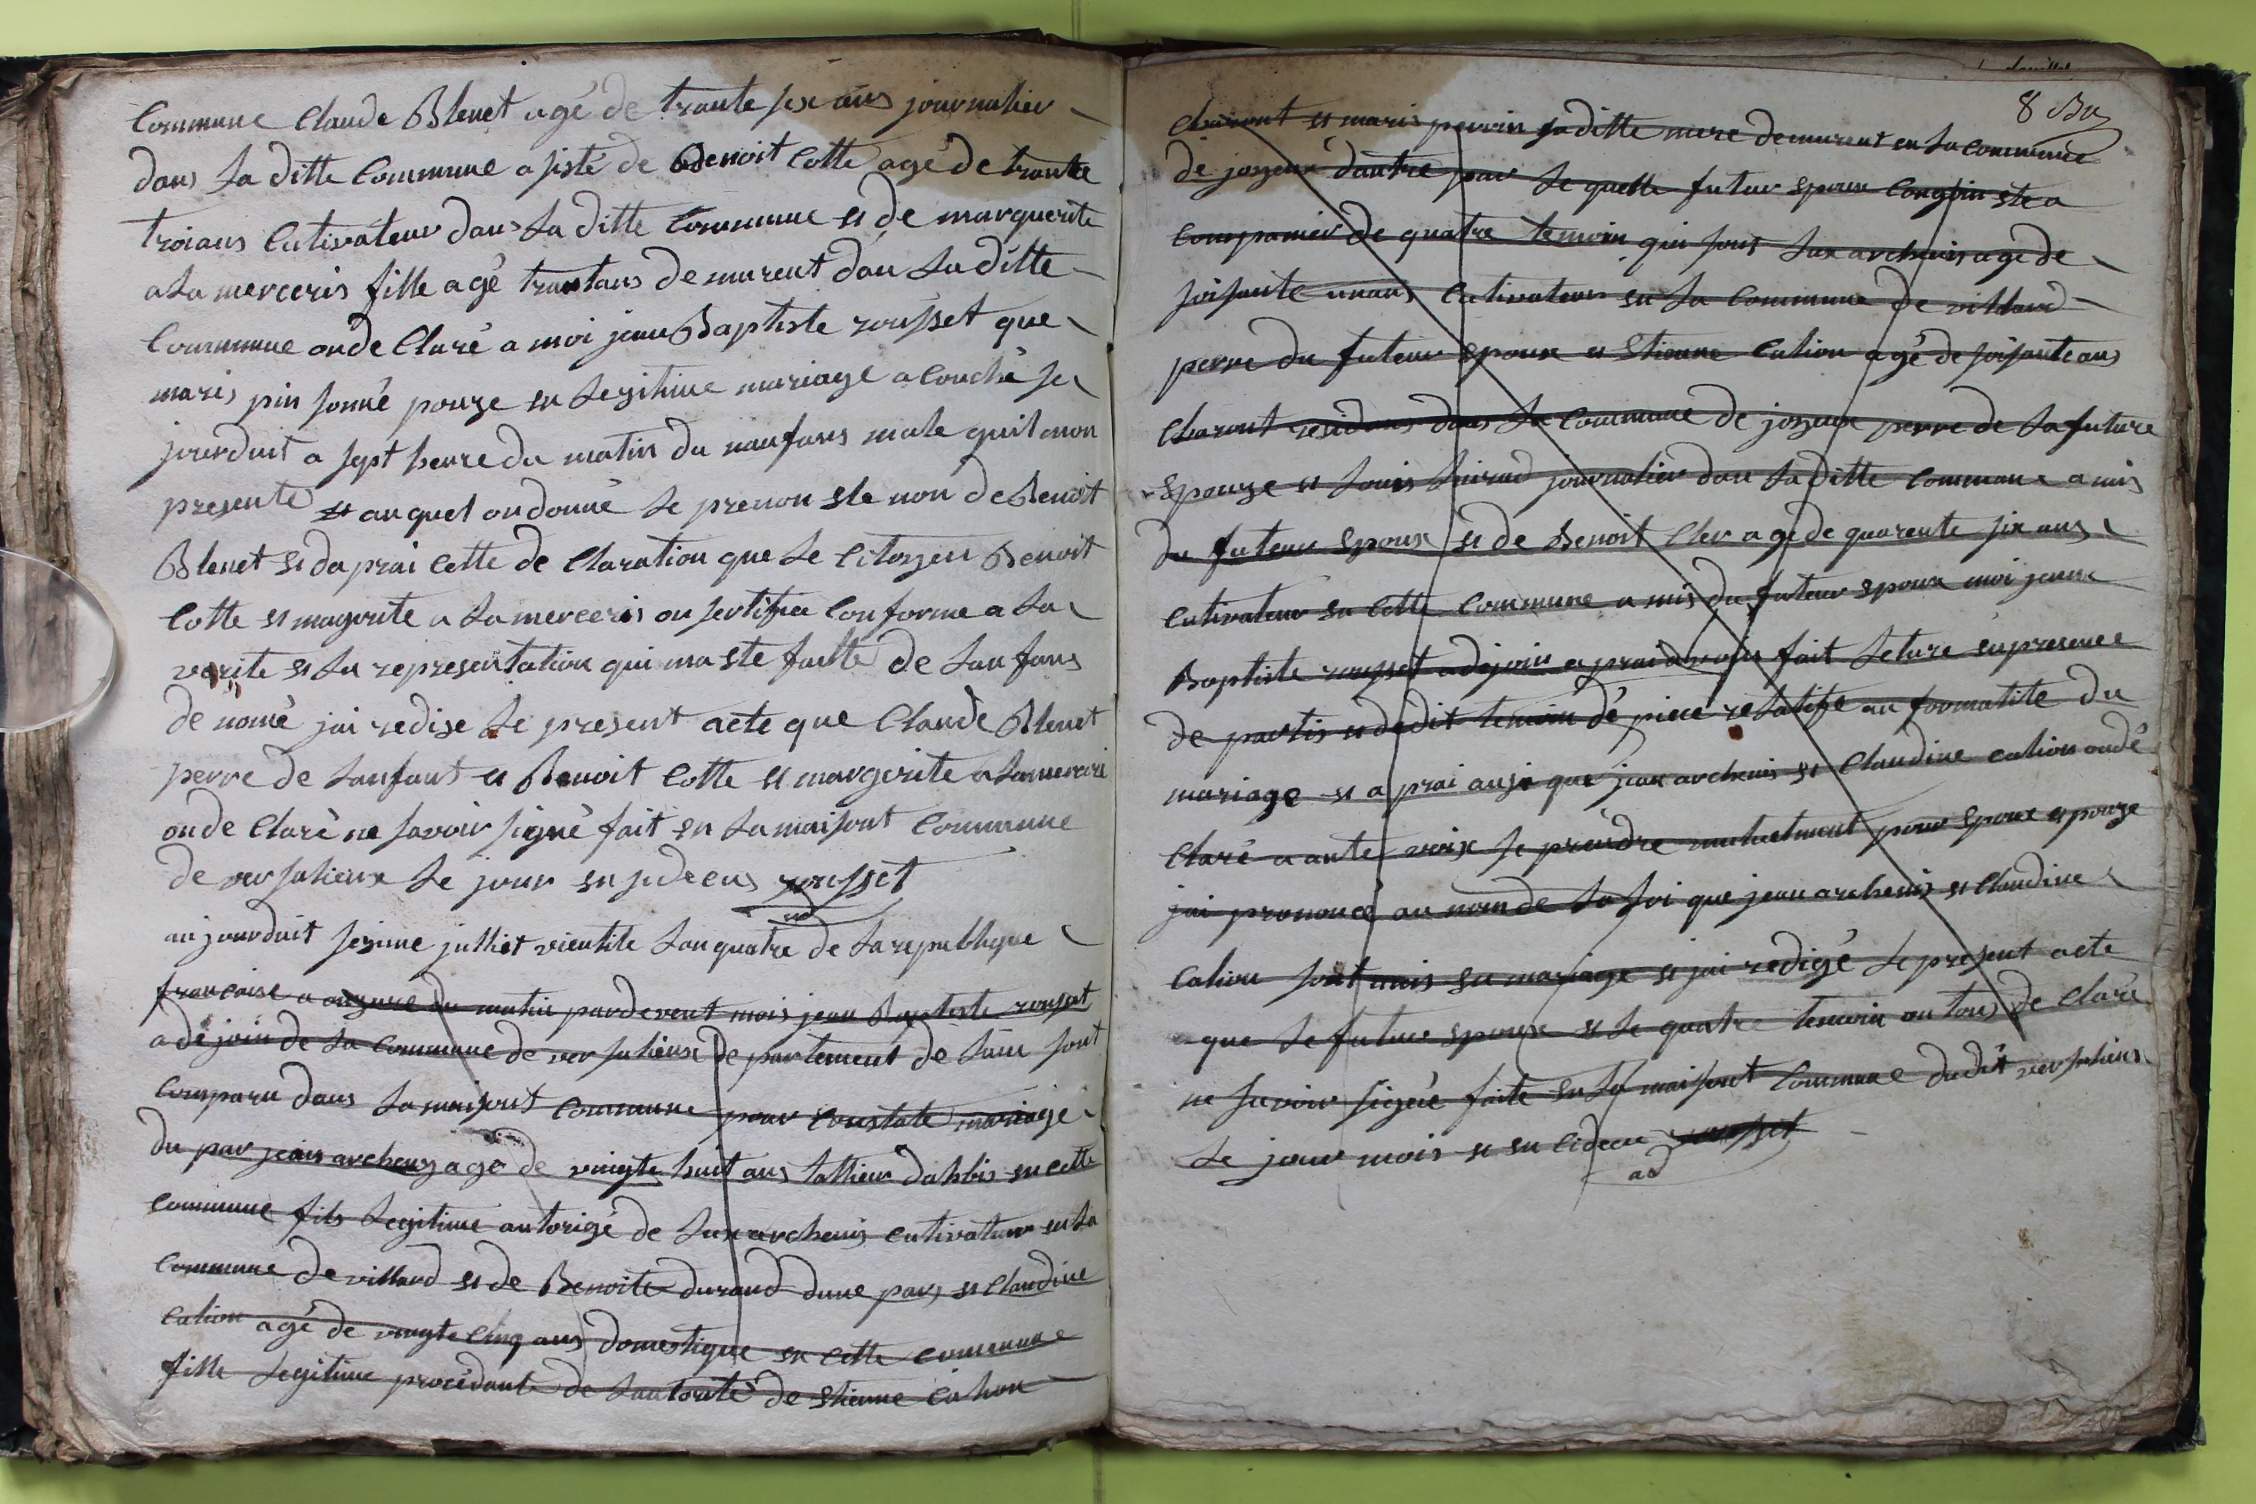 Commune Claude Blenet agé de trante six ans journalier
dans La ditte Commune a sisté de Benoit Cotte agé de trante
troians Cutivateur dans La ditte Commune et de marguerite
a La merceris fille agé trantans demurent dan La ditte
Commune onde Claré a moi jean Baptiste rousset que
maris pin sonné pouze en Legitime mariage a Couché se
jourduit a sept heure du matin du nanfans male quil mon
presenté et auquel on donné Le prenon et le non de Benoit
Blenet et da prai Cette de Claration que Le Citoyen Benoit
Cotte et magorite a La merceris on sertifiea Conforme a La
verite et La representation qui ma ete faitte de Lanfans
de nomé jai redise Le present acte que Claude Blenet
perre de Lanfant et Benoit Cotte et margorite a Lamerceri
onde Claré ne savoir signé fait en La maisont Commune
de versalieux Le jour en sideeus rousset
ad
aujourduit sezime julliet vieutite Lan quatre de La republique
francaise a onzeure du matin pardevent mois jean Baptiste rousset
adejoin de La Commune de versalieux departement de Lain sont
Comparu dans La maisont Commune pour Constate mariage
du par jean archeny age de vaingte huit ans tallieur dahbis en cette
Commune fils Legitime autorigé de Lux archenis Cutivateur en La
Commune de villard et de Benoite durand dune pars et Claudine
Calion agé de vingte Cinq ans domestique en Cette Commune
fille Legitime procedante de Lautorité de Etienne Calion
8 Bu
Charont et maris perrin sa ditte mere demurent en La Commune
de joyeux dautre par Le quelle futur epoux
Companier de quatre temoin qui sont Lux archenis age de
soisante unans Cutivateur en La Commune de villard
perre du futeur epoux et Etienne Calion agé de soisante ans
Charont residans dans La Commune de joyeux perre de La future
epouze et Louis journalier dan La ditte Commune a mis
du futeur epoux et de Benoit Cler age de quarente six ans
Cutivateur en Cette Commune a mis du futeur epoux moi jean
Baptiste rousset adejoin a prai avoir fait Leture enpresence
de partis et dedit temoin de piece relatife au formalite du
mariage et a prai ausi que jean archenis et Claudine calion ondé
Claré a aute voix se prendre mutuelment pour epoux epouze
jai prononcé au nom de La Loi que jean archenis et Claudine
Calion sont unis en mariage et jai redigé Le present acte
que Le futur epoux et Le quatre temoin on tous de Claré
ne savoir signé faite en La maisont Commune dudit versalieux
Le jour mois et en Cideeu rousset
ad